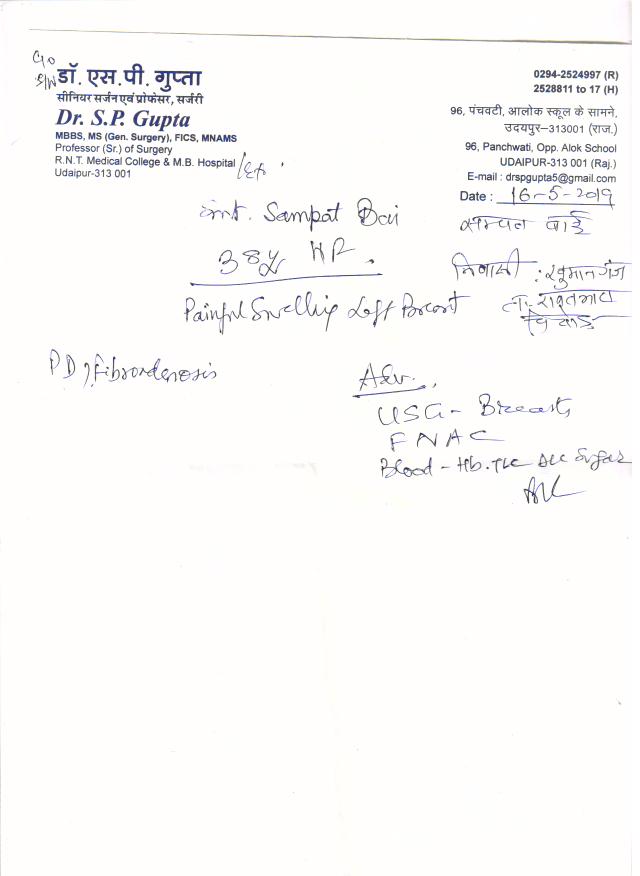 C/o
S/W डॉ. एस.पी. गुप्ता
सीनियर सर्जन एवं प्रोफेसर, सर्जरी
Dr. S.P. Gupta
MBBS, MS (Gen. Surgery), FICS, MNAMS
Professor (Sr.) of Surgery
R.N.T. Medical College & M.B. Hospital
Udaipur-313 001
0294-2524997 (R)
2528811 to 17 (H)
96, पंचवटी, आलोक स्कूल के सामने,
उदयपुर–313001 (राज.)
96, Panchwati, Opp. Alok School
UDAIPUR-313 001 (Raj.)
E-mail : drspgupta5@gmail.com
Date : 16-5-2019
Smt. Sampat Bai
सम्पत बाई
38y
निवासी :
Painful Swelling Left Breast
PD) Fibroadenosis
Adv.
USG - Breasts
FNAC
Blood - Hb. TLC DLC Sugar